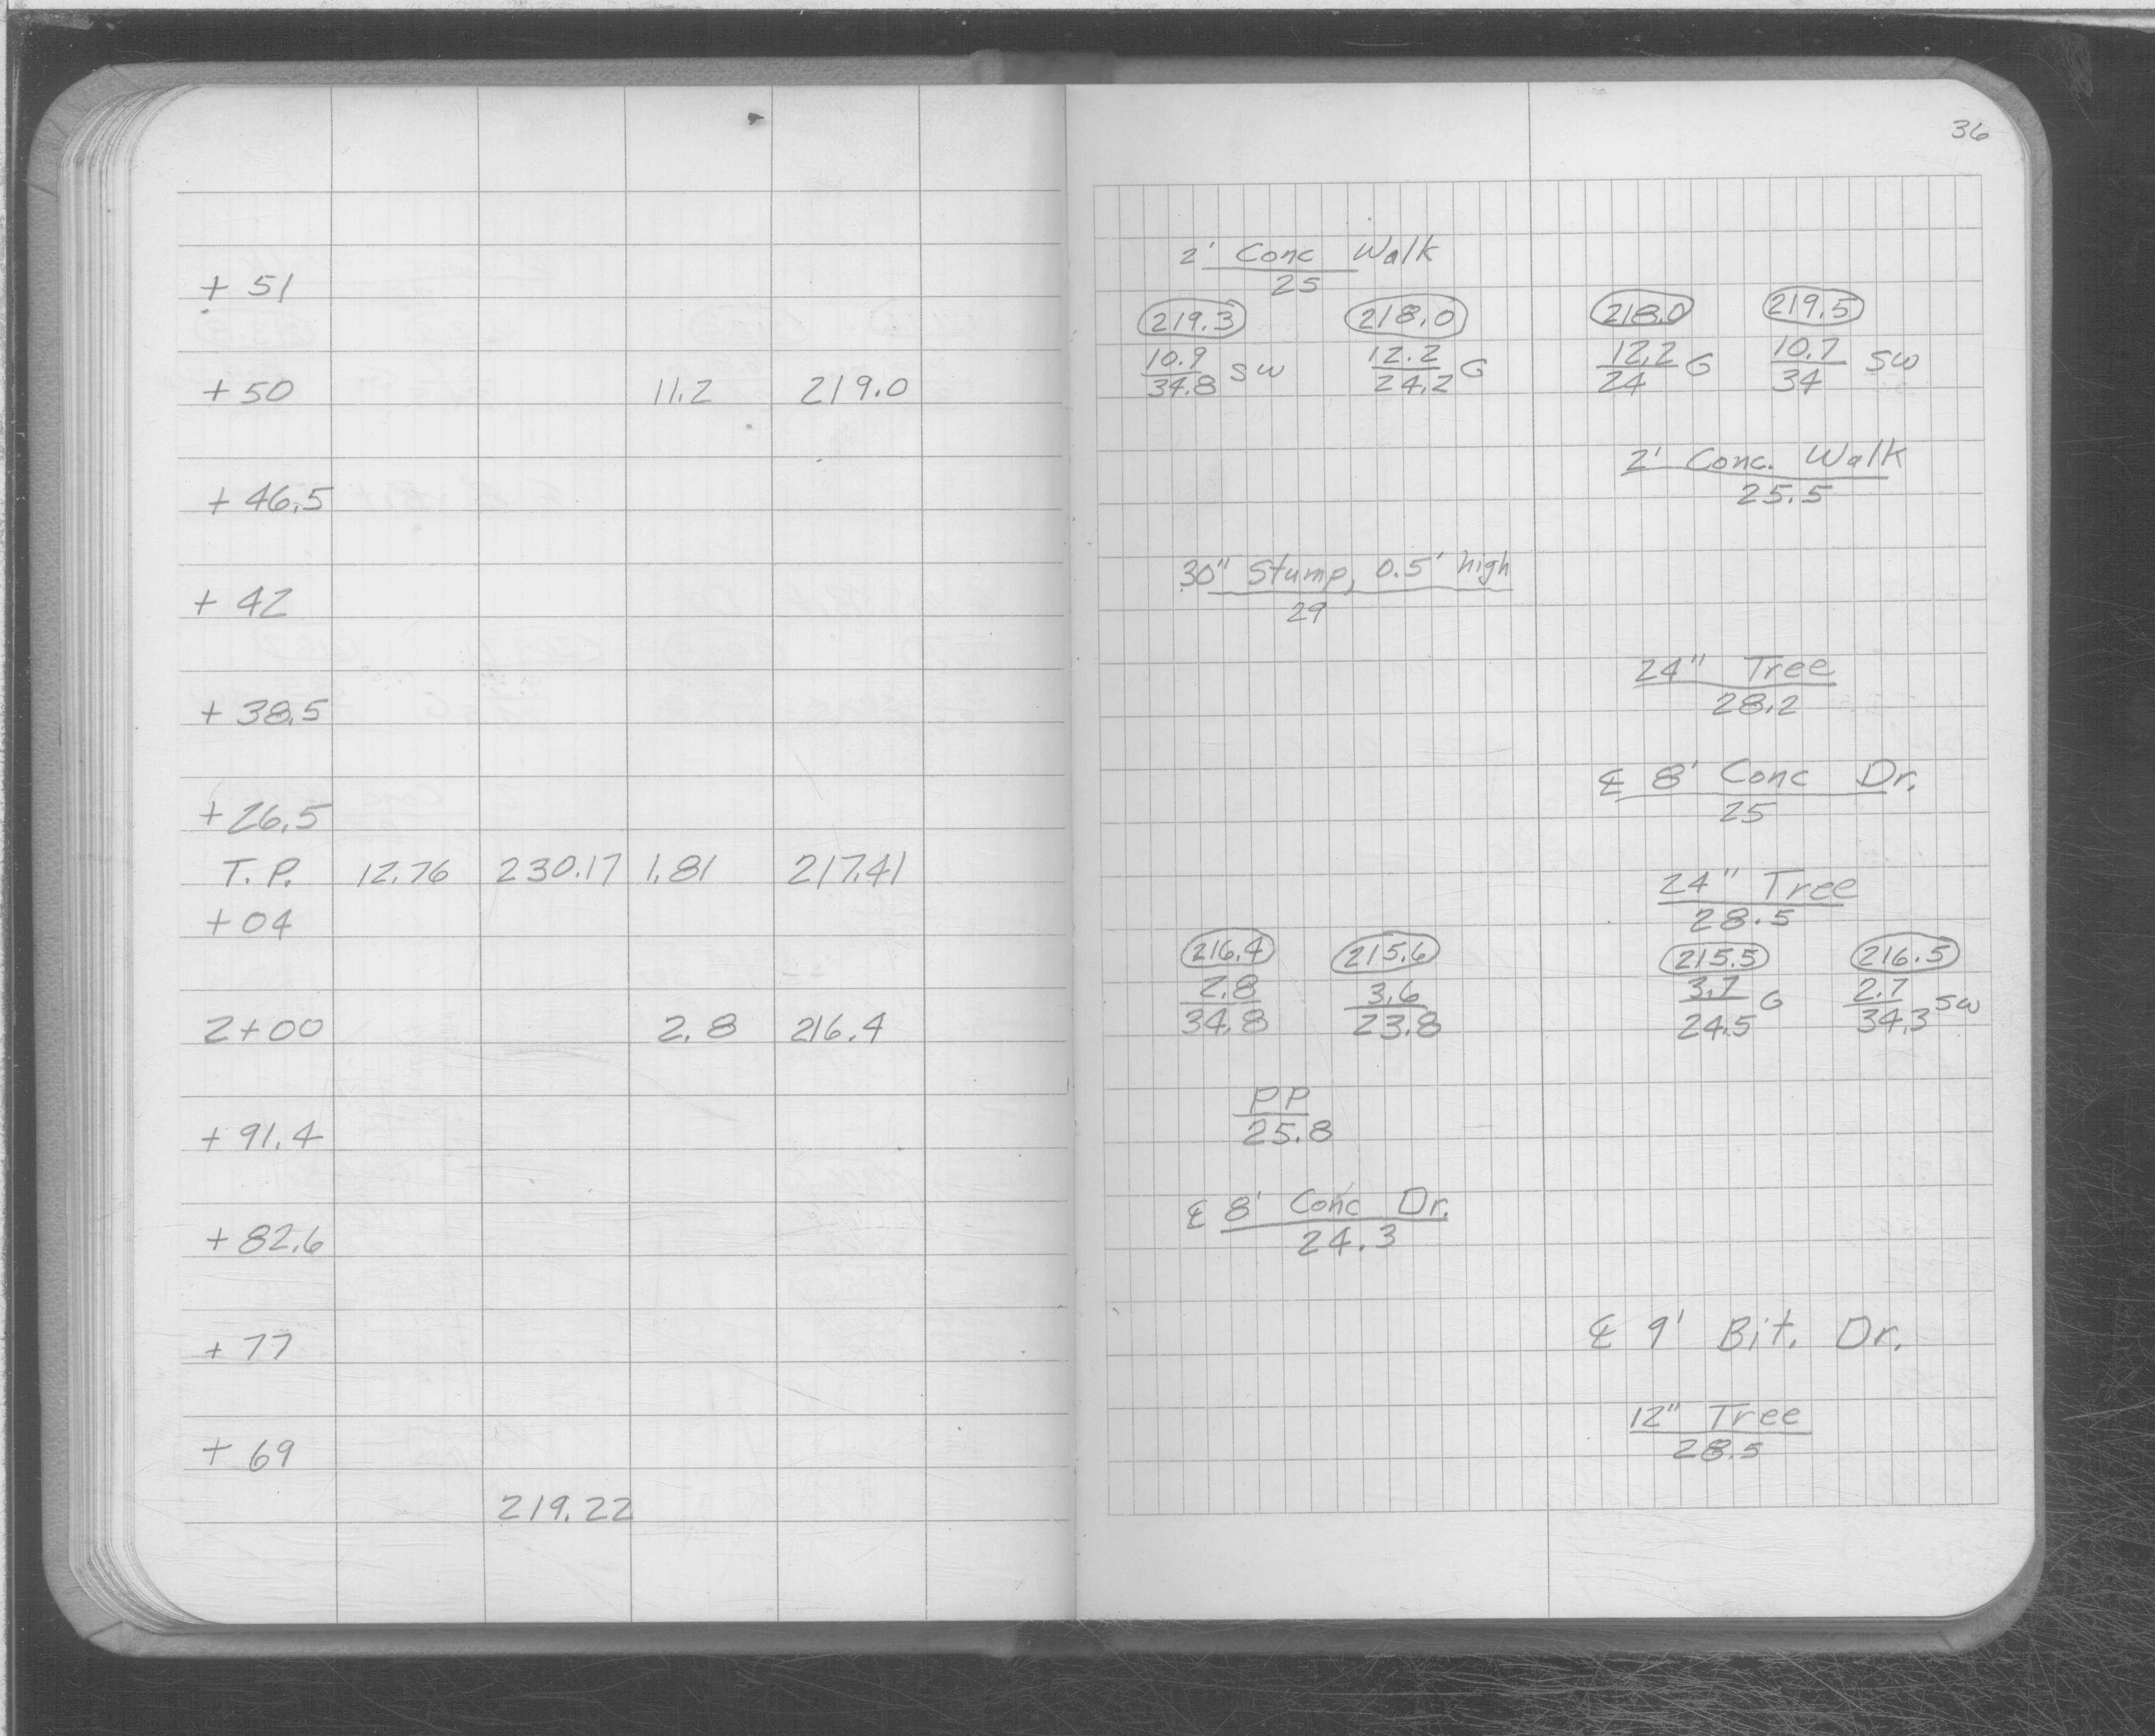 36
+ 51
+ 50 11.2 219.0
+ 46.5
+ 42
+ 38.5
+ 26.5
T.P. 12.76 230.17 1.81 217.41
+ 04
2+00 2.8 216.4
+ 91.4
+ 82.6
+ 77
+ 69
219.22
2' Conc Walk
25
219.3 218.0 218.0 219.5
10.9 SW 12.2 G 12.2 G 10.7 SW
34.8 24.2 24 34
2' Conc. Walk
25.5
30" Stump, 0.5' high
29
24" Tree
28.2
℄ 8' Conc Dr.
25
24" Tree
28.5
216.4 215.6 215.5 216.5
2.8 3.6 3.7 G 2.7 SW
34.8 23.8 24.5 34.3
PP
25.8
℄ 8' Conc Dr.
24.3
℄ 9' Bit. Dr.
12" Tree
28.5